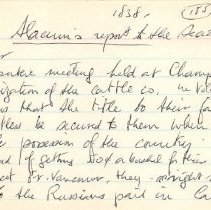 1838. (185
Slacum's report to the Sec
or
meeting held at Champ
ization of the cattle co.
s that the title to their fa
be secured to them when
possession of the country.
d of getting 50¢ a bushel for their
at Ft. Vancouver, they might
to the Russians paid in Ca